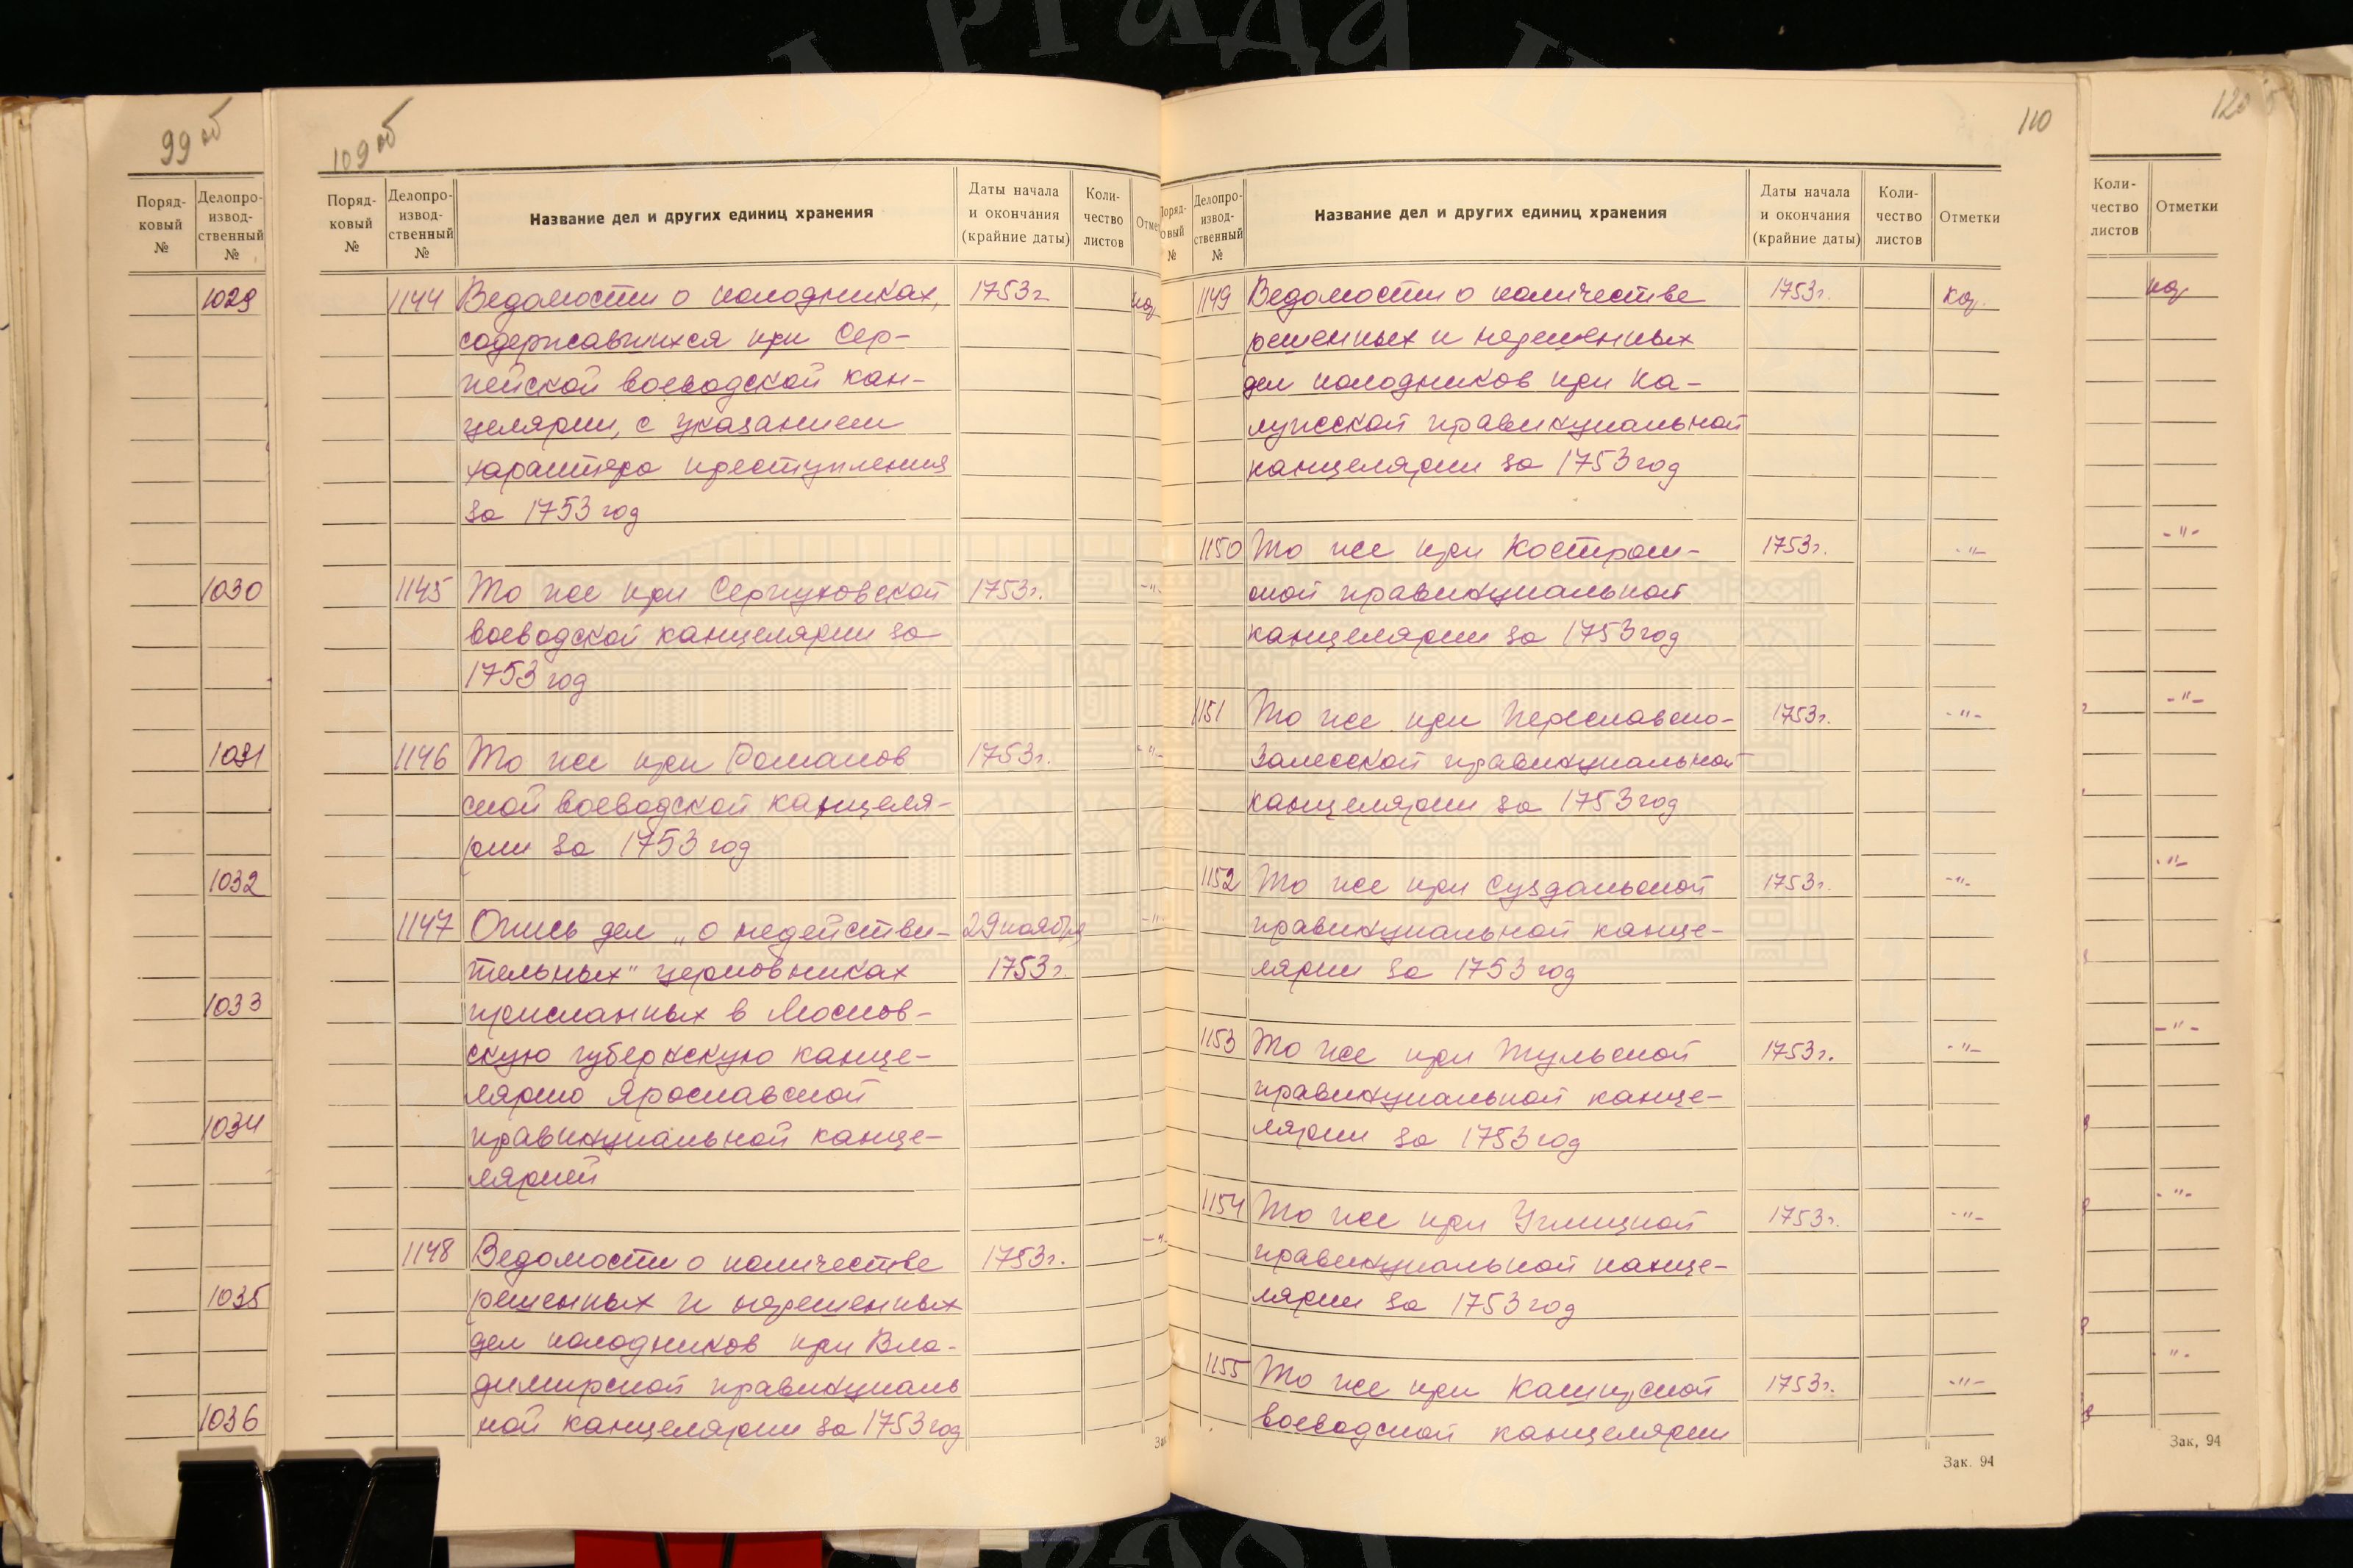 99 об
Поряд-
ковый
№
Делопро-
извод-
ственный
№
1029
1030
1031
1032
1033
1034
1035
1036
109 об
Поряд-
ковый
№
Делопро-
извод-
ственный
№
Название дел и других единиц хранения
Даты начала
и окончания
(крайние даты)
Коли-
чество
листов
Отме
1144 Ведомости о колодниках, 1753 г.
содержавшихся при Сер-
пейской воеводской кан-
целярии, с указанием
характера преступления
за 1753 год
1145 То же при Серпуховской 1753 г. -"-
воеводской канцелярии за
1753 год
1146 То же при Романов 1753 г. -"-
ской воеводской канцеля-
рии за 1753 год
1147 Опись дел „о недействи- 29 ноября -"-
тельных" церковниках 1753 г.
присланных в Москов-
скую губернскую канце-
лярию Ярославской
провинциальной канце-
лярией
1148 Ведомости о количестве 1753 г. -"-
решенных и нерешенных
дел колодников при Вла-
димирской провинциаль
ной канцелярии за 1753 год
110
Поряд-
овый
№
Делопро-
извод-
ственный
№
Название дел и других единиц хранения
Даты начала
и окончания
(крайние даты)
Коли-
чество
листов
Отметки
1149 Ведомости о количестве 1753 г.
решенных и нерешенных
дел колодников при Ка-
лужской провинциальной
канцелярии за 1753 год
1150 То же при Костром- 1753 г. -"-
ской провинциальной
канцелярии за 1753 год
1151 То же при Переславско- 1753 г. -"-
Залесской провинциальной
канцелярии за 1753 год
1152 То же при Суздальской 1753 г. -"-
провинциальной канце-
лярии за 1753 год
1153 То же при Тульской 1753 г. -"-
провинциальной канце-
лярии за 1753 год
1154 То же при Углицкой 1753 г. -"-
провинциальной канце-
лярии за 1753 год
1155 То же при Каширской 1753 г. -"-
воеводской канцелярии
Зак. 94
Коли-
чество
листов
Отметки
-"-
-"-
-"-
-"-
-"-
-"-
Зак. 94